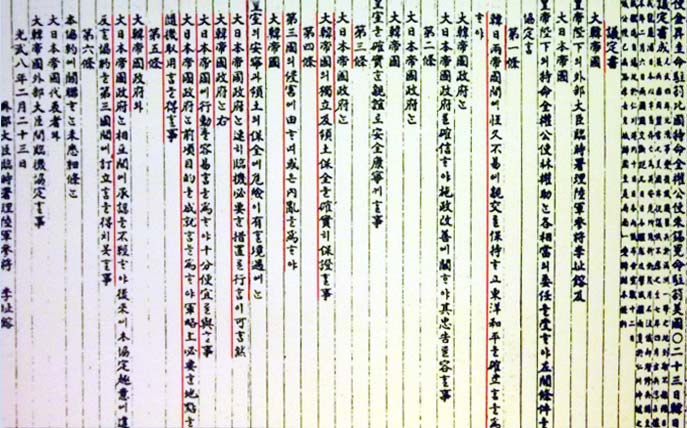 命駐箚比國特命全權公使朱錫冕命駐箚美國〇二十三日韓日
議定書成
議定書
大韓帝國
皇帝陛下의外部大臣臨時署理陸軍參將李址鎔及
大日本帝國
皇帝陛下의特命全權公使林權助는各相當의委任을受ᄒᆞ야左開條件을
協定ᄒᆞᆷ
第一條
韓日兩帝國間에恒久不易에親交를保持ᄒᆞ고東洋和平을確立ᄒᆞᆷ을爲
ᄒᆞ야
大韓帝國政府는
大日本帝國政府를確信ᄒᆞ야施政改善에關ᄒᆞ야其忠告를容ᄒᆞᆯ事
第二條
大日本帝國政府는
大韓帝國
皇室을確實ᄒᆞᆫ親誼로安全康寧케ᄒᆞᆯ事
第三條
大日本帝國政府는
大韓帝國의獨立及領土保全을確實히保證ᄒᆞᆯ事
第四條
第三國의侵害에由ᄒᆞ며或은內亂을爲ᄒᆞ야
大韓帝國
皇室의安寧과領土의保全에危險이有ᄒᆞᆯ境遇에는
大日本帝國政府는速히臨機必要ᄒᆞᆫ措置를行ᄒᆞᆷ이可ᄒᆞᆯ然
大韓帝國政府는右
大日本帝國에行動을容易ᄒᆞᆷ을爲ᄒᆞ야十分便宜를與ᄒᆞᆯ事
大日本帝國政府는前項目的을成就ᄒᆞᆷ을爲ᄒᆞ야軍略上必要ᄒᆞᆫ地點을
隨機收用ᄒᆞᆷ을得ᄒᆞᆯ事
第五條
大韓帝國政府와
大日本帝國政府는相互間에承認을不經ᄒᆞ야後來에本協定趣意에違
反ᄒᆞᆯ協約을第三國間에訂立ᄒᆞᆷ을得치못ᄒᆞᆯ事
第六條
本協約에關聯ᄒᆞ는未悉細條는
大日本帝國代表者와
大韓帝國外部大臣間에臨機協定ᄒᆞᆯ事
光武八年二月二十三日
外部大臣臨時署理陸軍參將 李址鎔